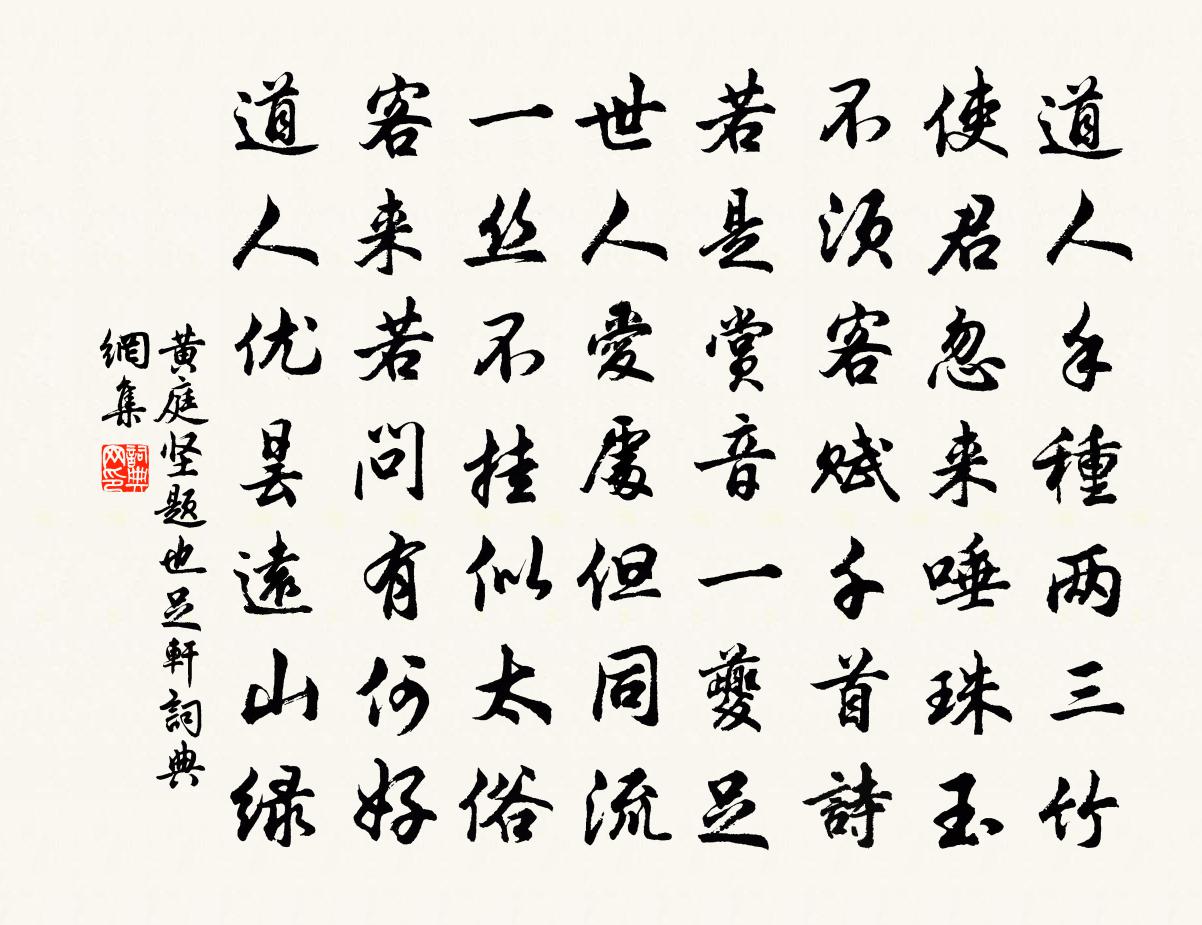 道人手種两三竹
使君忽来唾珠玉
不須客賦千首詩
若是賞音一夔足
世人愛處但同流
一丝不挂似太俗
客来若问有何好
道人优昙遠山绿
黄庭坚题也足軒詞典
網集
詞典
网印